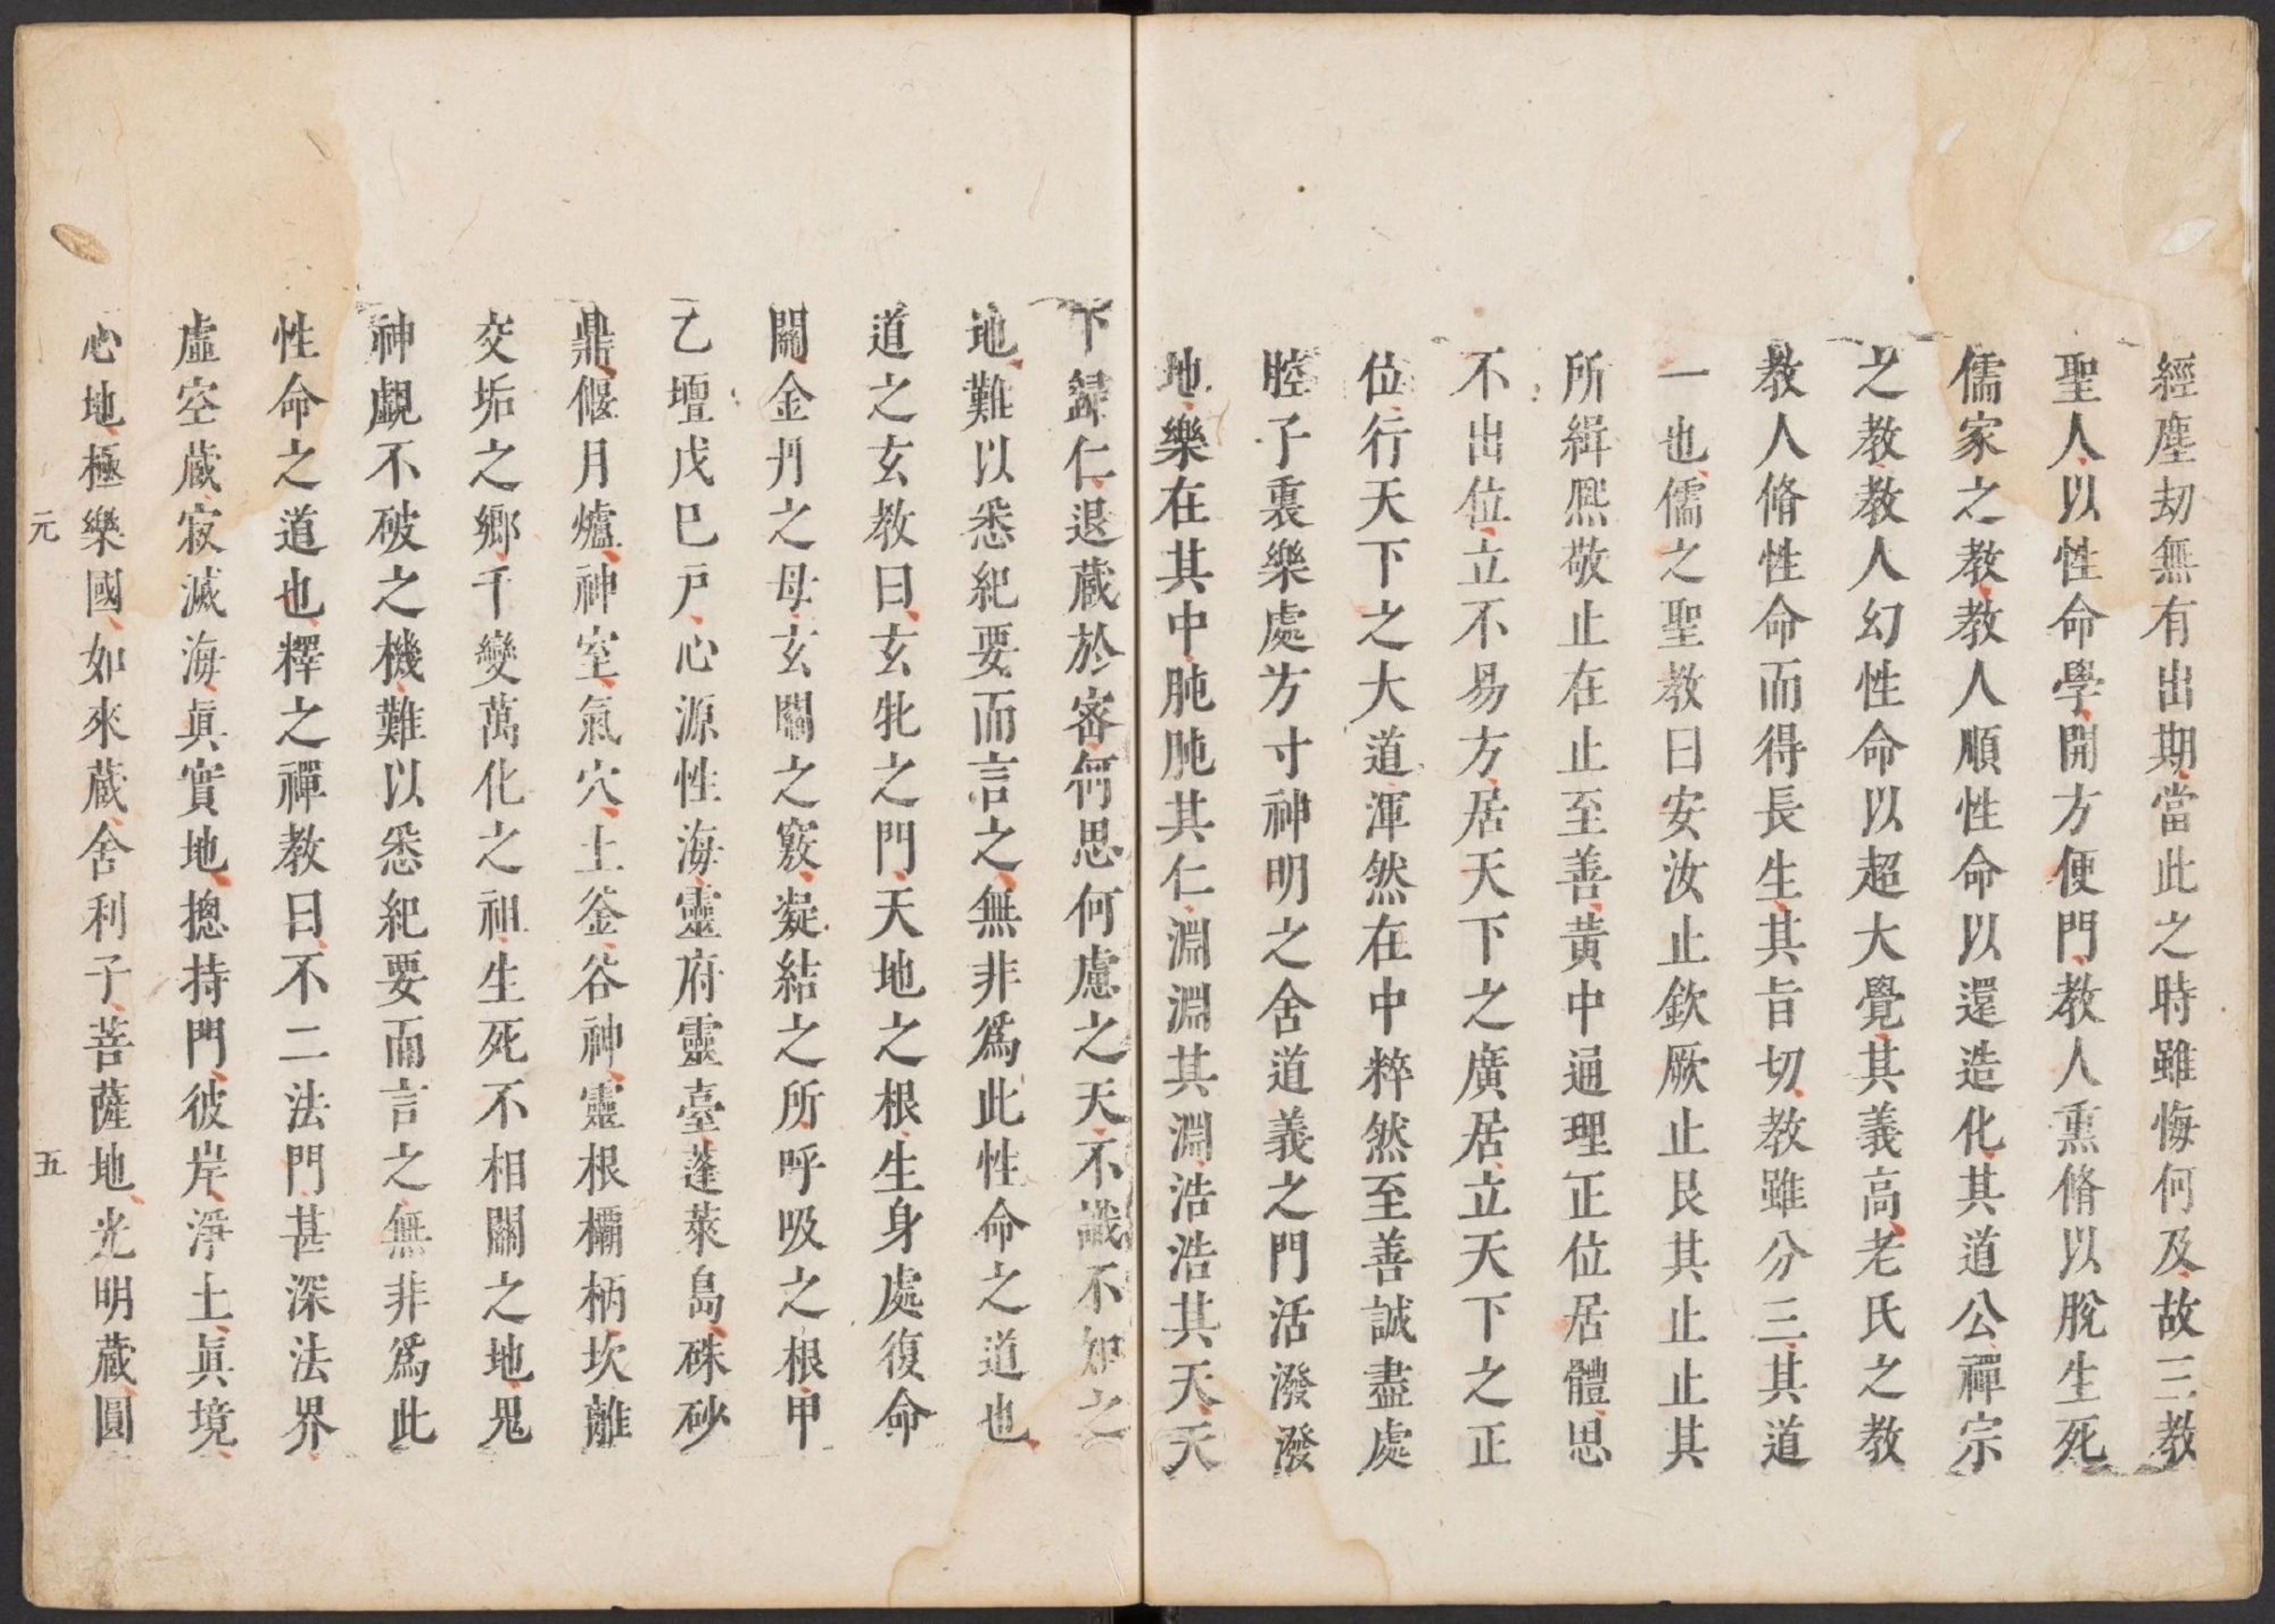 經塵刼無有出期當此之時雖悔何及故三教
聖人以性命學開方便門教人熏脩以脫生死
儒家之教教人順性命以還造化其道公禪宗
之教教人幻性命以超大覺其義高老氏之教
教人脩性命而得長生其旨切教雖分三其道
一也儒之聖教曰安汝止欽厥止艮其止止其
所緝熈敬止在止至善黃中通理正位居體思
不出位立不易方居天下之廣居立天下之正
位行天下之大道渾然在中粹然至善誠盡處
腔子裏樂處方寸神明之舍道義之門活潑潑
地樂在其中肫肫其仁淵淵其淵浩浩其天天
下歸仁退藏於密何思何慮之天不識不知之
地難以悉紀要而言之無非爲此性命之道也
道之玄教曰玄牝之門天地之根生身處復命
關金丹之母玄關之竅凝結之所呼吸之根甲
乙壇戊巳戶心源性海靈府靈臺蓬萊島硃砂
鼎偃月爐神室氣穴土釜谷神靈根欛柄坎離
交垢之鄉千變萬化之祖生死不相關之地鬼
神覷不破之機難以悉紀要而言之無非爲此
性命之道也釋之禪教曰不二法門甚深法界
虛空藏寂滅海眞實地摠持門彼岸淨土眞境
心地極樂國如來藏舍利子菩薩地光明藏圓
元 五